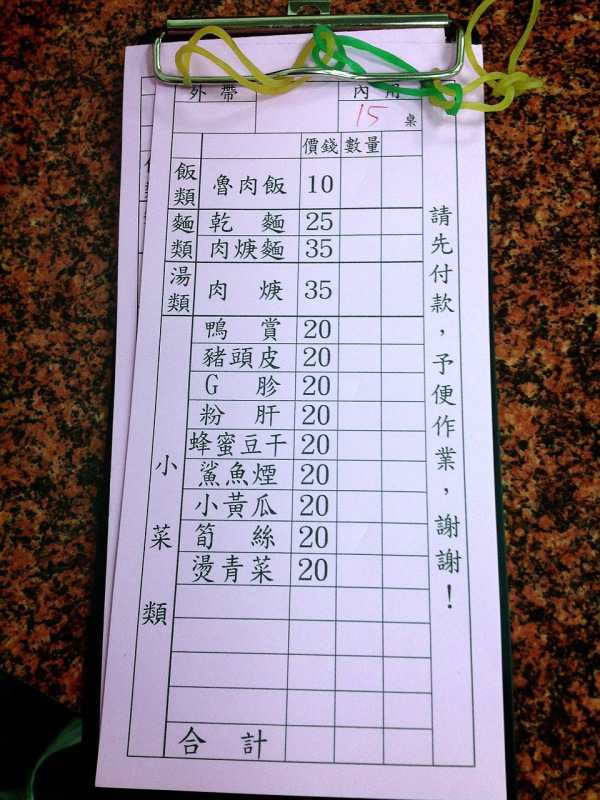 外帶 內用
15 桌
價錢 數量
飯類 魯肉飯 10
麵類 乾麵 25
肉焿麵 35
湯類 肉焿 35
小菜類
鴨賞 20
豬頭皮 20
G胗 20
粉肝 20
蜂蜜豆干 20
鯊魚煙 20
小黃瓜 20
筍絲 20
燙青菜 20
合計
請先付款，予便作業，謝謝！